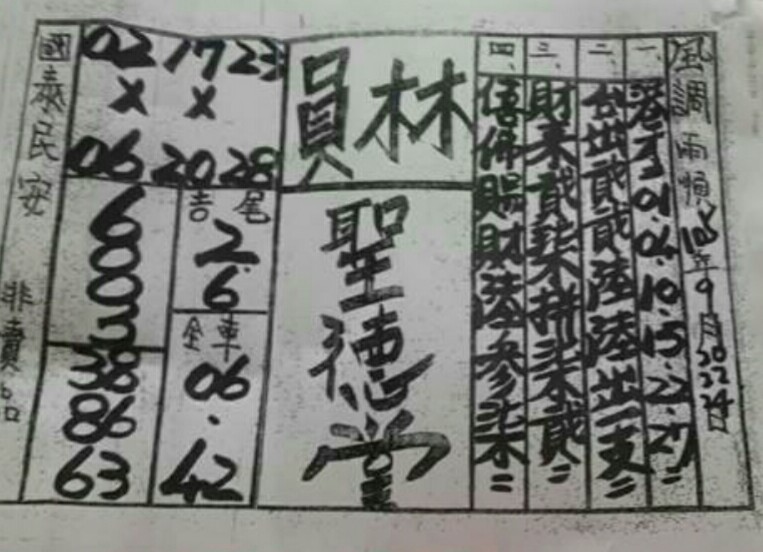 風調雨順 105年9月20 22 24日
一、港才01.06.10.15.22.27=
二、台出貳貳陸陸出一支=
三、財來貳柒拼柒貳=
四、僖佛賜財陸參柒=
員林
聖德堂
02 17 23
X X
06 20 28
吉尾
2
6
全車
06.
42
38
86
63
國泰民安 非賣品